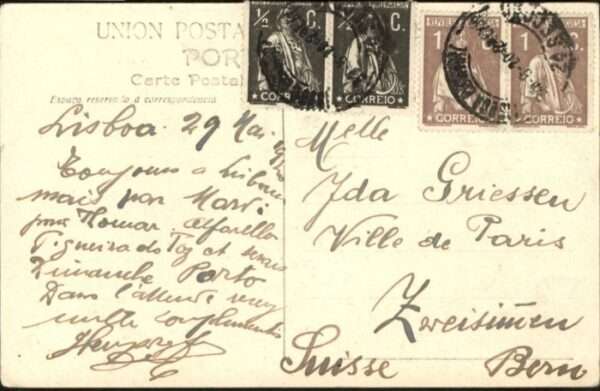 UNION POSTA
PORT
Carte Postal
Espaço reservado á correspondencia
½ C.
CORREIO
½ C.
CORREIO
1 C.
CORREIO
1 C.
CORREIO
Lisboa. 29 Mai
Toujours a Lisbonne
mais par Mardi
pour Thomar
Figueira da Foz et
Dimanche Porto
Dans l'attente
mille compliments
Melle
Ida Griessen
Ville de Paris
Zweisimmen
Suisse Bern